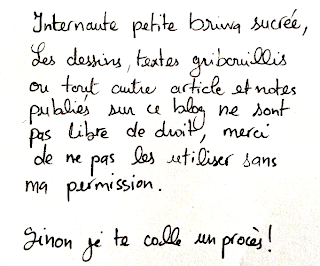 Internaute petite briwa sucrée,
Les dessins, textes gribouillis
ou tout autre article et notes
publiés sur ce blog ne sont
pas libre de droit, merci
de ne pas les utiliser sans
ma permission.
Sinon je te colle un procès!